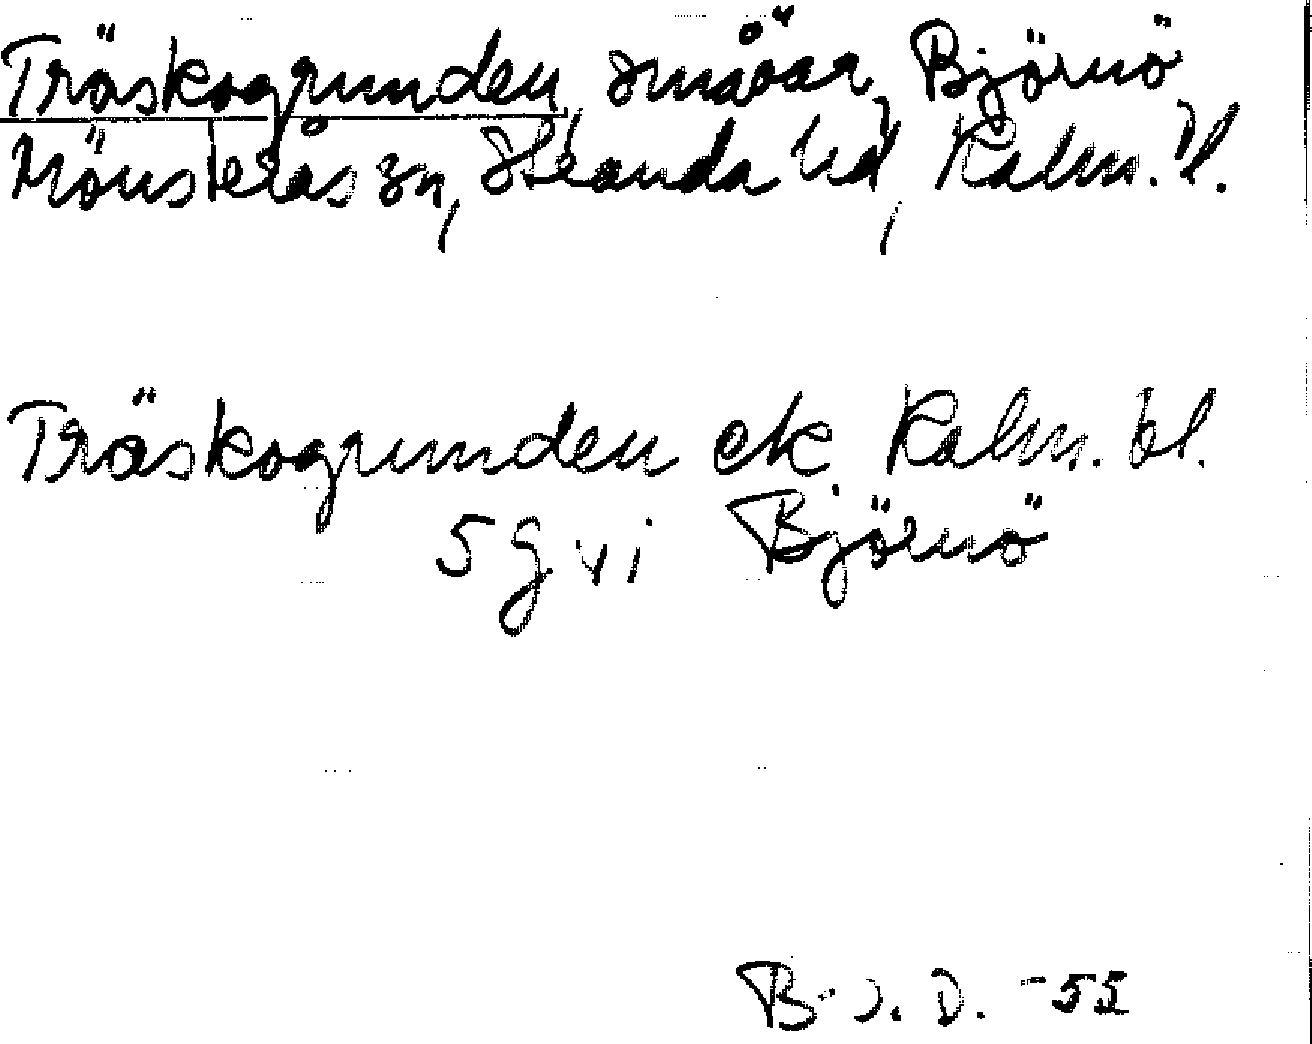 Träskogrunden, småöar, Björnö,
Mönsterås sn, Stranda hd, Kalm. l.
Träskogrunden ek Kalm. bl.
5 g vi Björnö
B-J. D. -55